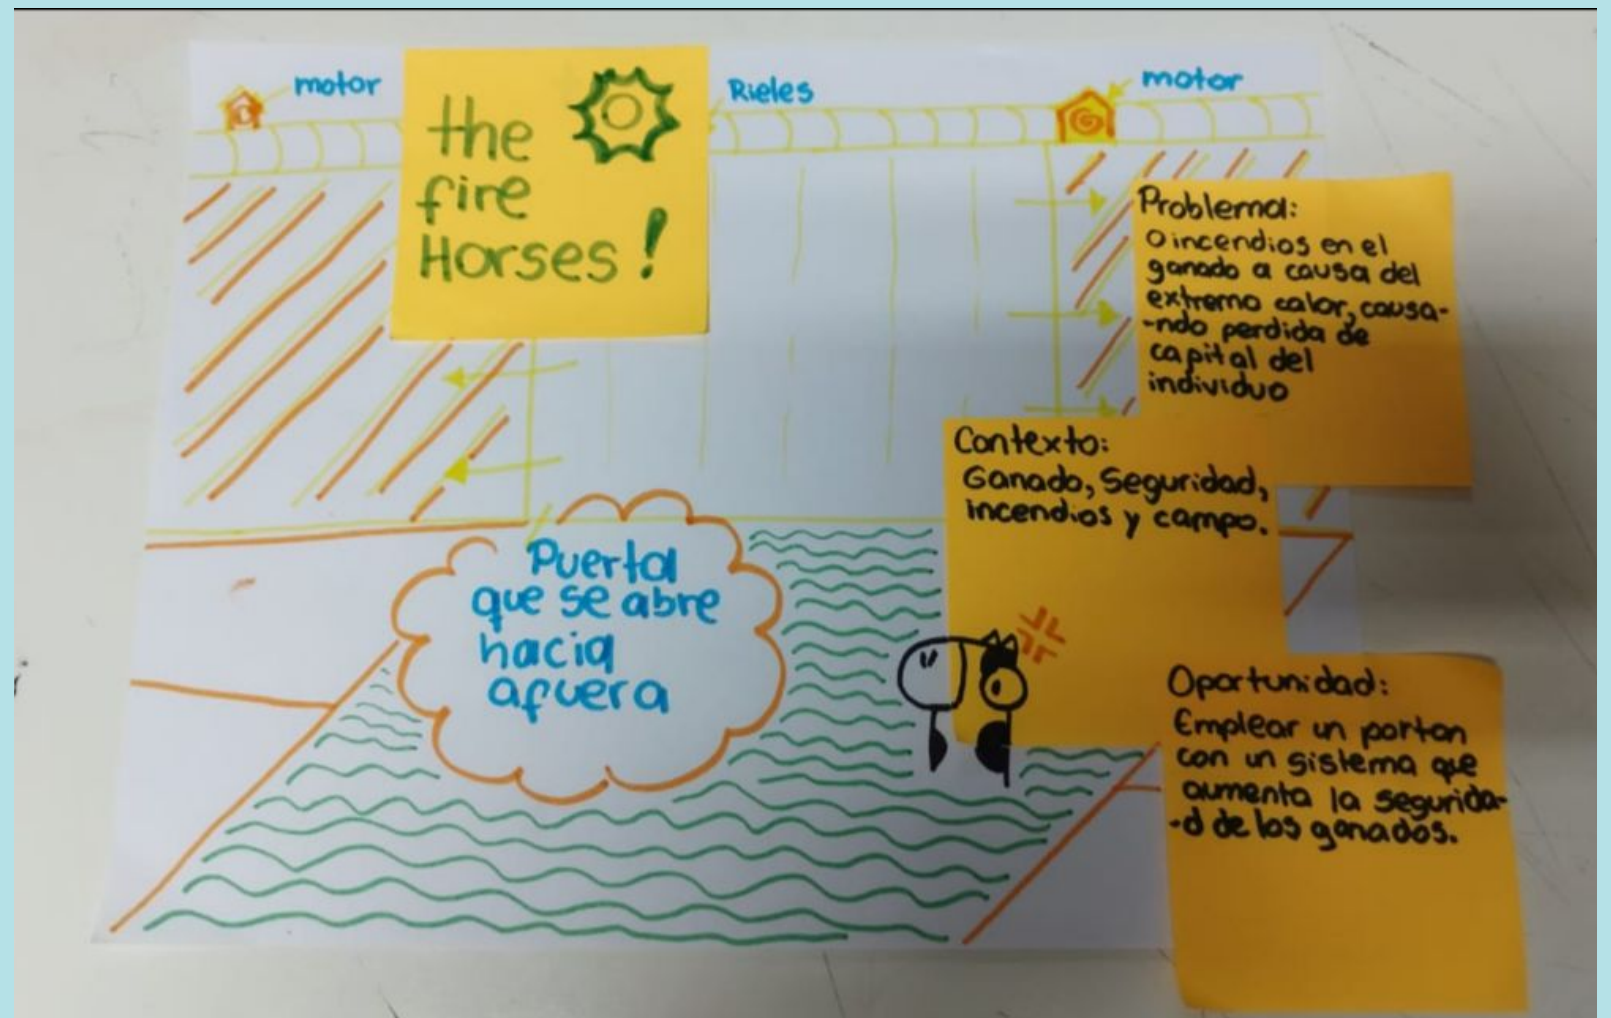 motor
the
fire
Horses!
Rieles
motor
Problema:
O incendios en el
ganado a causa del
extremo calor, causa-
-ndo perdida de
capital del
individuo
Contexto:
Ganado, Seguridad,
incendios y campo.
Puerta
que se abre
hacia
afuera
Oportunidad:
Emplear un porton
con un sistema que
aumenta la segurida-
-d de los ganados.